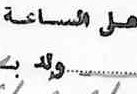 هل الساعة
ولد ب